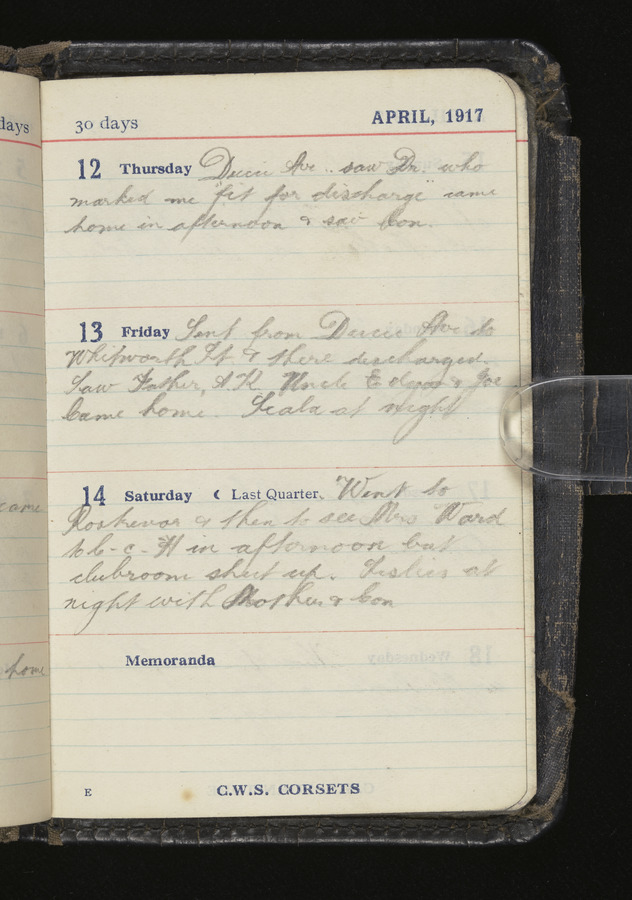 days
30 days
APRIL, 1917
12 Thursday Ducie Ave .. saw Dr. who
marked me "fit for discharge" came
home in afternoon & saw Con.
13 Friday Sent from Ducie Ave to
Whitworth St & there discharged.
Saw Father, A K Uncle & Joe
Came home. Scala at night
14 Saturday ( Last Quarter. Went to
Rostrevor & then to see Mrs Ward
to C-C-H in afternoon but
clubroom shut up. Leslies at
night with Mother & Con
came
home
Memoranda
E
C.W.S. CORSETS